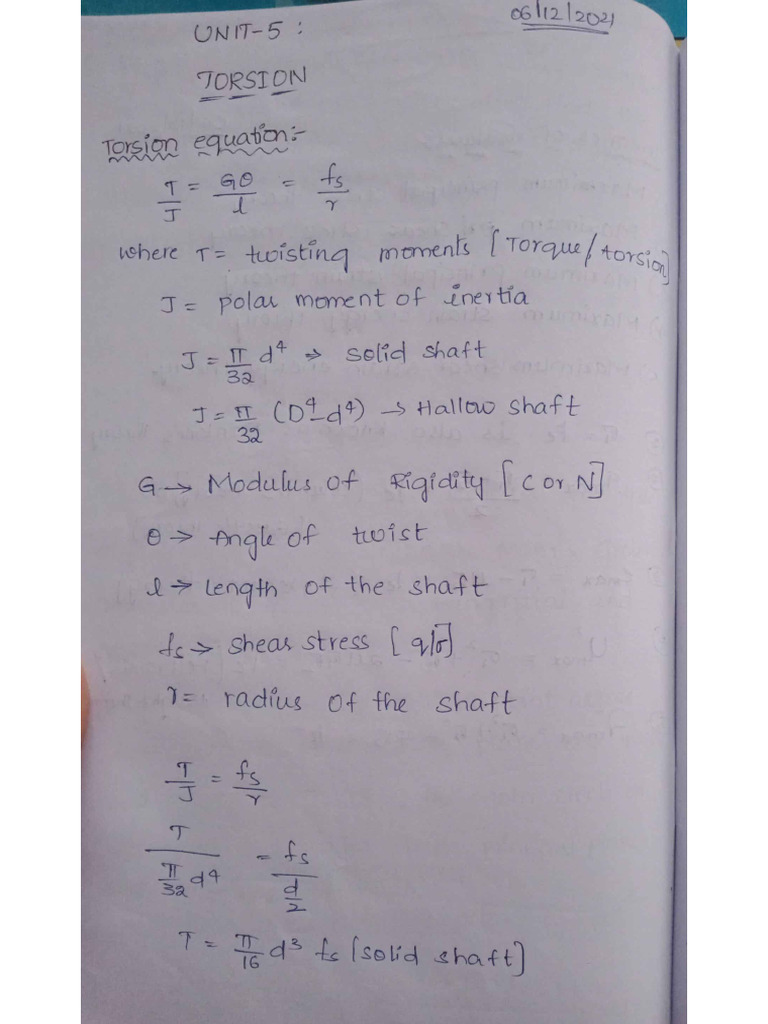 06/12/2021
UNIT-5:
TORSION
Torsion equation:-
T/J = Gθ/l = fs/r
where T= twisting moments [Torque/torsion]
J= polar moment of inertia
J= π/32 d⁴ → solid shaft
J= π/32 (D⁴-d⁴) → Hallow shaft
G → Modulus of Rigidity [C or N]
θ → Angle of twist
l → Length of the shaft
fs → shear stress
r= radius of the shaft
T/J = fs/r
T/(π/32 d⁴) = fs/(d/2)
T = π/16 d³ fs [solid shaft]